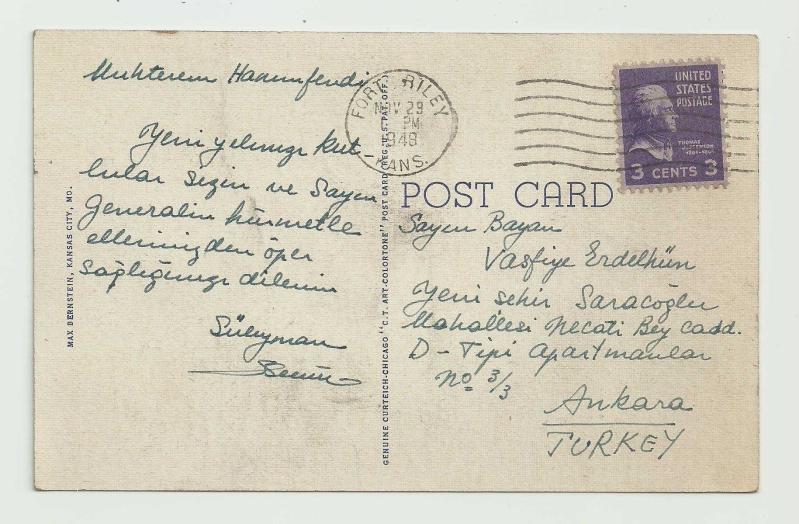 Muhterem Hanımfendi
Yeni yılınızı kut
lular sizin ve Sayın
Generalin hürmetle
ellerinizden öper
sağlığınızı dilerim
Süleyman
FORT RILEY
NOV 29
PM
1948
KANS.
UNITED
STATES
POSTAGE
THOMAS
JEFFERSON
3 CENTS 3
POST CARD
Sayın Bayan
Vasfiye Erdelhün
Yeni şehir Saracoğlu
Mahallesi Necati Bey Cadd.
D-Tipi Apartmanlar
No 3/3
Ankara
TURKEY
MAX BERNSTEIN, KANSAS CITY, MO.
GENUINE CURTEICH-CHICAGO "C.T. ART-COLORTONE" POST CARD (REG. U.S. PAT. OFF.)